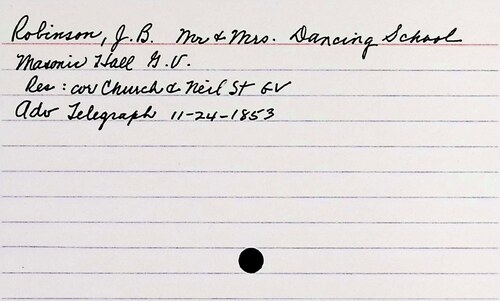 Robinson, J.B. Mr & Mrs. Dancing School
Masonic Hall G.V.
Res: cor Church & Neil St GV
Adv Telegraph 11-24-1853